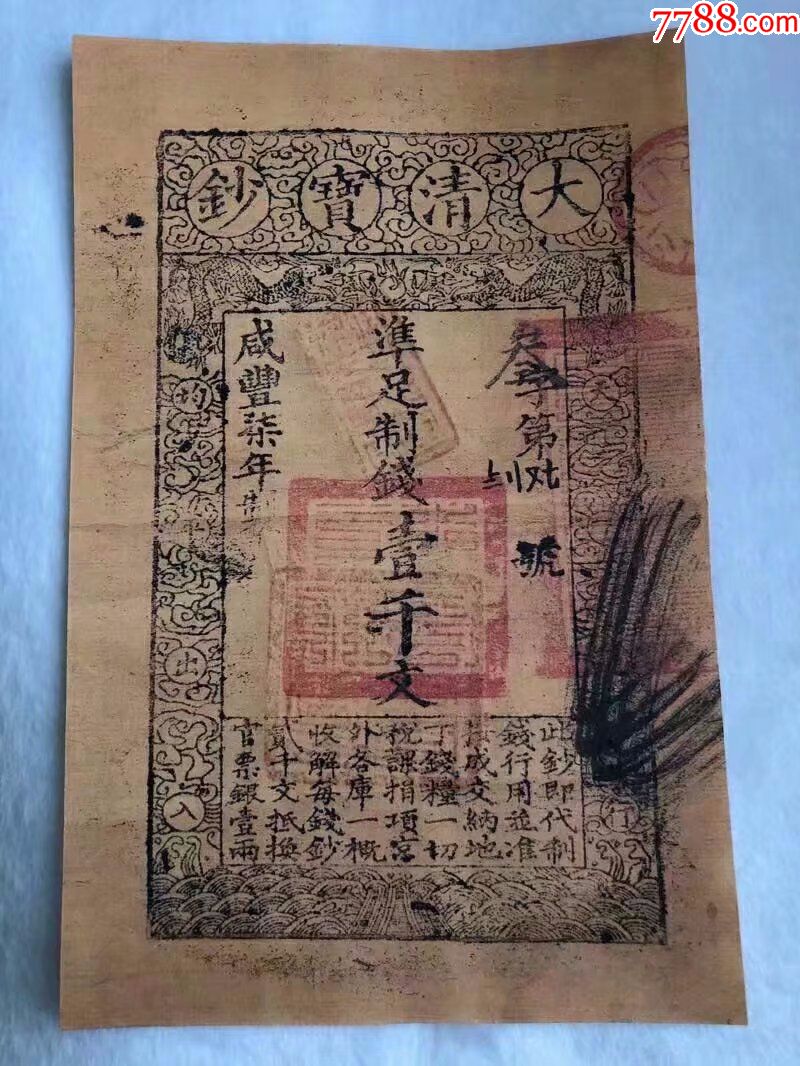 7788.com
大清寶鈔
字第
號
準足制錢壹千文
咸豐柒年製
均
出
入
行
此鈔即代制
錢行用並准
按成交納地
丁錢糧一切
稅課捐項京
外各庫一概
收解每錢鈔
貳千文抵換
官票銀壹兩